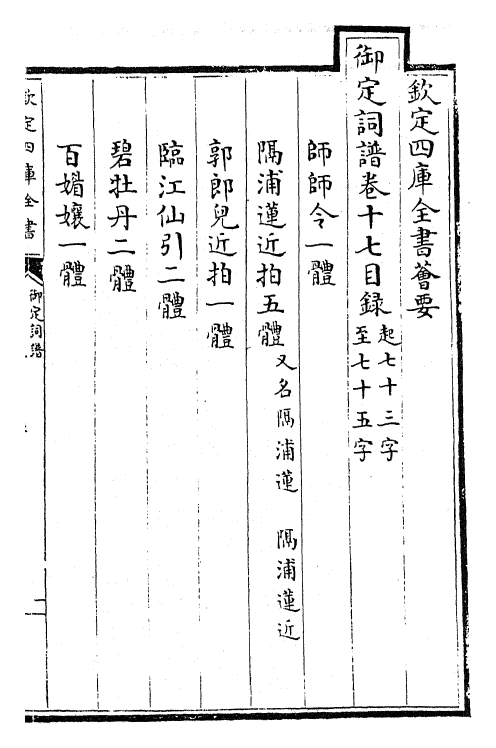 欽定四庫全書薈要
御定詞譜卷十七目録 起七十三字
至七十五字
師師令一體
隔浦蓮近拍五體 又名隔浦蓮 隔浦蓮近
郭郎兒近拍一體
臨江仙引二體
碧牡丹二體
百媚孃一體
欽定四庫全書
御定詞譜